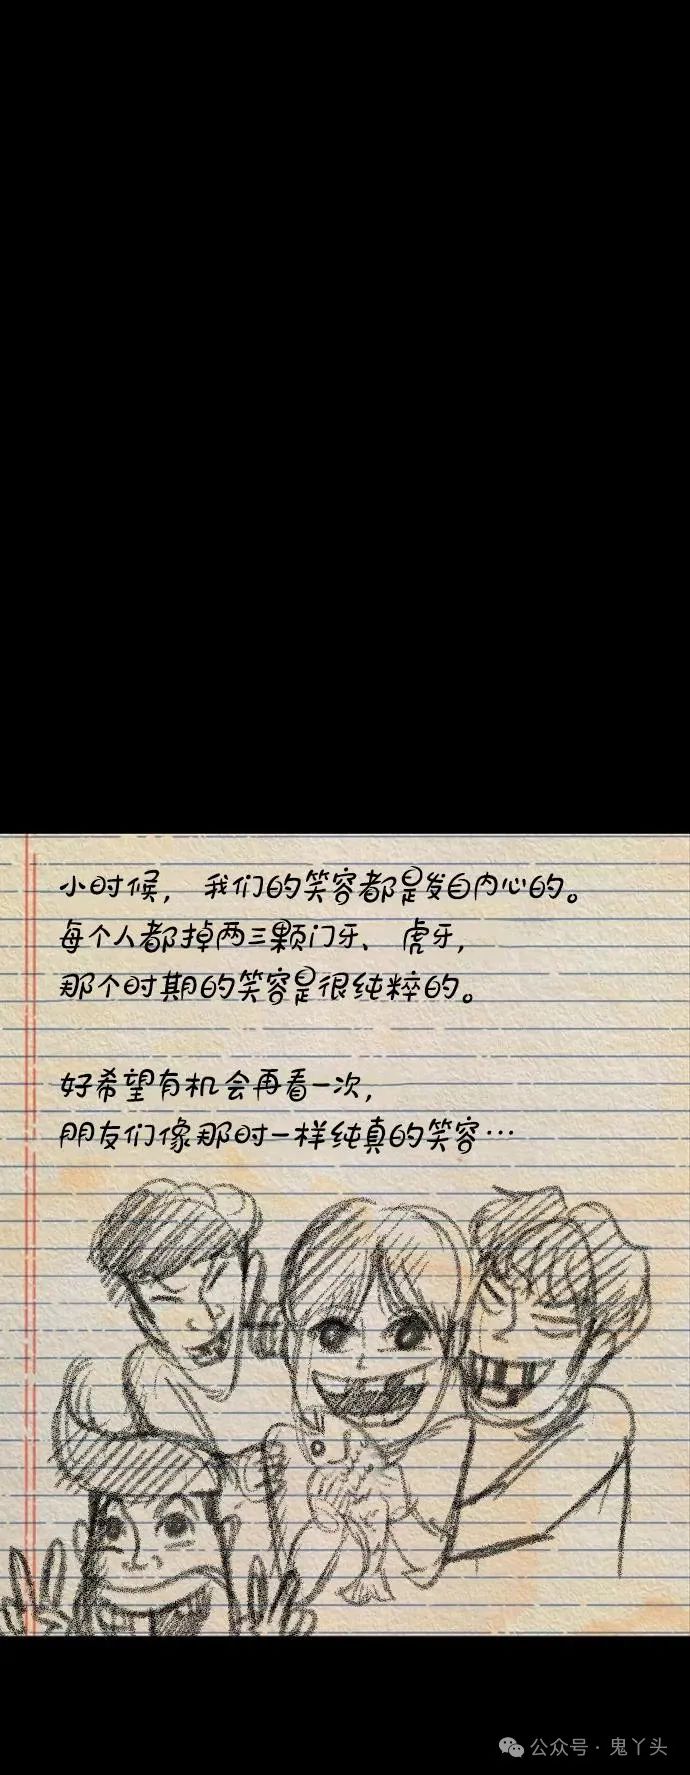 小时候，我们的笑容都是发自内心的。
每个人都掉两三颗门牙、虎牙，
那个时期的笑容是很纯粹的。
好希望有机会再看一次，
朋友们像那时一样纯真的笑容…
公众号·鬼丫头